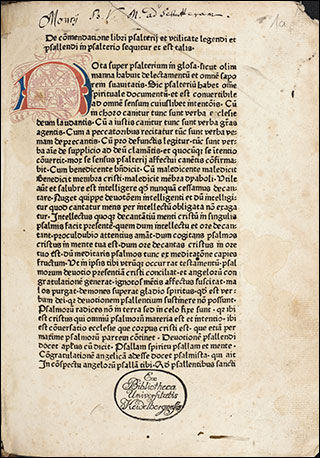 Monrij B. V. M. ad
1a
De cōmendatione libri psalterij et vtilitate legendi et
psallendi in psalterio sequitur et est talis
Nota super psalterium in glosa. sicut olim
manna habuit delectamentū et omnē sapo
rem suauitatis. Sic psalteriū habet omē
spirituale documentū et est conuertibile
ad omnē sensum cuiuslibet intentōis. Cū
in choro canitur tunc sunt verba ecclesie
deum laudantis. Cū a iustis canitur tunc sunt verba grās
agentis. Cum a peccatoribus recitatur tūc sunt verba ve
niam deprecantis. Cū pro defunctis legitur tūc sunt ver
ba aīe de supplicio ad deū clamātis et quocūqȝ se itentio
cōuertit mox se sensus psalterij affectui canētis cōfirma
bit. Cum benedicente bn̄dicit. Cū maledicente maledicit
Benedicit membra cristi maledicit mēbra dyaboli. Vtile
aūt et salubre est intelligere qd̄ nunquā cessamus decan
tare. Auget quippe deuotōem intelligenti et dū intelligi
tur quod cantatur mens per intellectū obligata nō euaga
tur. Intellectus quoqȝ decantātiū menti cristū in singulis
psalmis facit presentē. quem dum intellectu et ore decan
tant proculdubio attentius amāt dum cogitans psalmos
cristus in mente tua est. dum ore decantas cristus in ore
tuo est. dū meditaris psalmos tunc ex meditatōne capies
fructum. Vt in ipsis tibi verūqȝ occurrat testamentū psal
morum deuotio presentiā cristi conciliat. et angelorū con
gratulatione generat. ignotos mētis affectus suscitat. ma
los purgat. demones superat gladio spiritus. qd̄ est ver
bum dei. qȝ deuotionem psallentium sustinere nō possunt.
Psalmorū radices nō in terra sed in celo fixe sunt. qȝ ibi
est cristus qui omniū psalmorū materia est et intentio. ibi
est cōuersatio ecclesie que corpus cristi est. que etiā per
maxime psalmorū partem cōtinet. Deuotionē psallendi
docet aptus cū dicit. Psallam spiritu psallam et mente.
Cōgratulationē angelicā adesse docet psalmista. qui ait
In cōspectu angelorū psallā tibi. Ad psallentibus sancti
Ex
Bibliotheca
Universitatis
Heidelbergensis